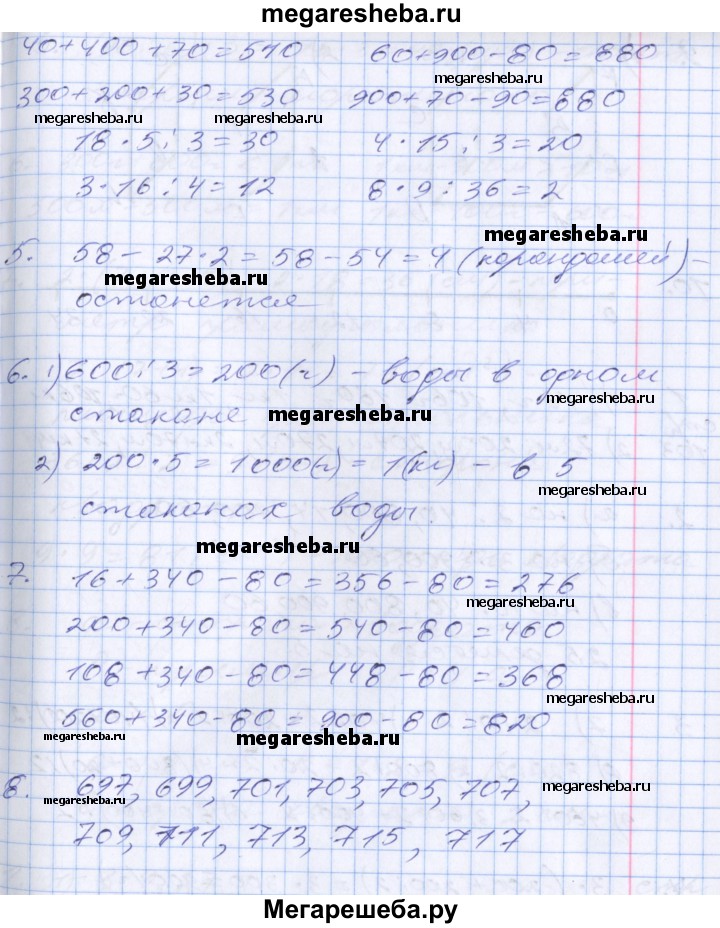 megaresheba.ru
40+400+70=510 60+900-80=880
megaresheba.ru
300+200+30=530 900+70-90=880
megaresheba.ru megaresheba.ru
18·5:3=30 4·15:3=20
3·16:4=12 8·9:36=2
megaresheba.ru
5. 58-27·2=58-54=4 (карандашей)-
megaresheba.ru
останется
6. 1) 600:3=200(г) - воды в одном
megaresheba.ru
стакане megaresheba.ru
2) 200·5=1000(г)=1(кг) - в 5
megaresheba.ru
стаканах воды.
megaresheba.ru
7. 16+340-80=356-80=276
megaresheba.ru
200+340-80=540-80=460
108+340-80=448-80=368
megaresheba.ru
560+340-80=900-80=820
megaresheba.ru megaresheba.ru
8. 697, 699, 701, 703, 705, 707, megaresheba.ru
megaresheba.ru
709, 711, 713, 715, 717
Мегарешеба.ру